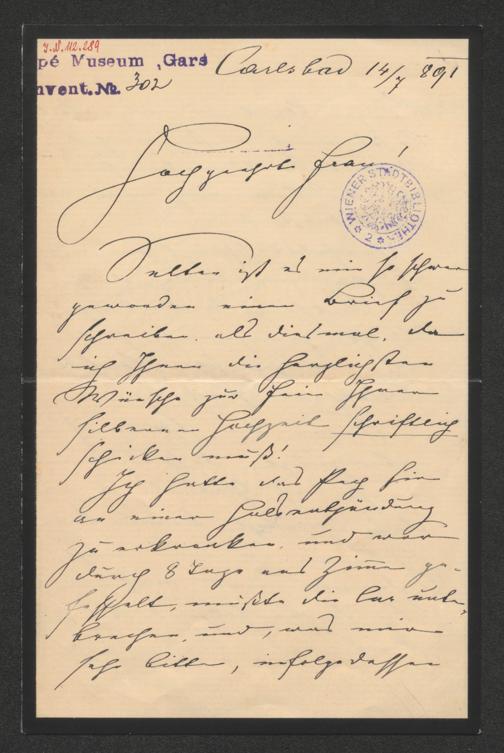 J.N. 112.289
pé Museum, Gars
nvent. №. 302
Carlsbad 14/7 891
Hochgeehrte Frau!
WIENER STADTBIBLIOTHEK
2
Selten ist es mir so schwer
geworden einen Brief zu
schreiben, als diesmal, da
ich Ihnen die herzlichsten
Wünsche zur Feier Ihrer
silbernen Hochzeit schriftlich
schicken muß!
Ich hatte das Pech hier
an einer Halsentzündung
zu erkranken, und war
durch 8 Tage ans Zimmer ge-
fesselt, mußte die Cur unter-
brechen, und, was mir
sehr bitter, infolgedessen